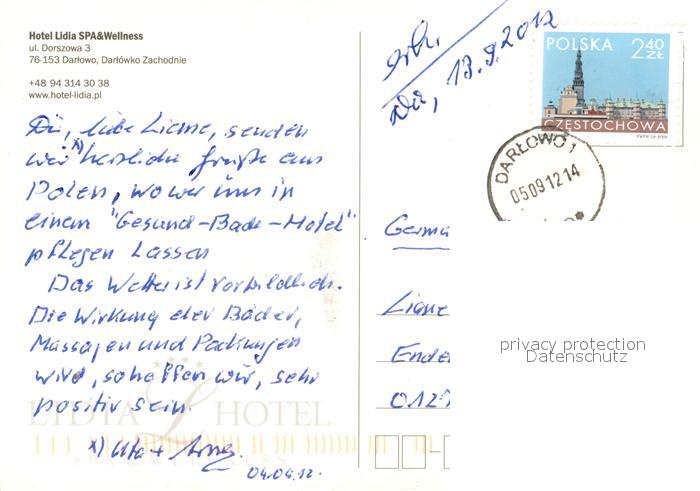 Hotel Lidia SPA&Wellness
ul. Dorszowa 3
76-153 Darłowo, Darłówko Zachodnie
+48 94 314 30 38
www.hotel-lidia.pl
Dir, liebe Liane, senden
wir x) herzliche Grüße aus
Polen, wo wir uns in
einem "Gesund-Bade-Hotel"
pflegen lassen
Das Wetter ist vorbildlich.
Die Wirkung der Bäder,
Massagen und Packungen
wird, so hoffen wir, sehr
positiv sein.
LIDIA HOTEL
x) Uta +
04.09.12.
13.9.2012
POLSKA 2 40 ZŁ
CZĘSTOCHOWA
DARŁOWO 1
050912 14
Germa
Liane
Ende
012
privacy protection
Datenschutz